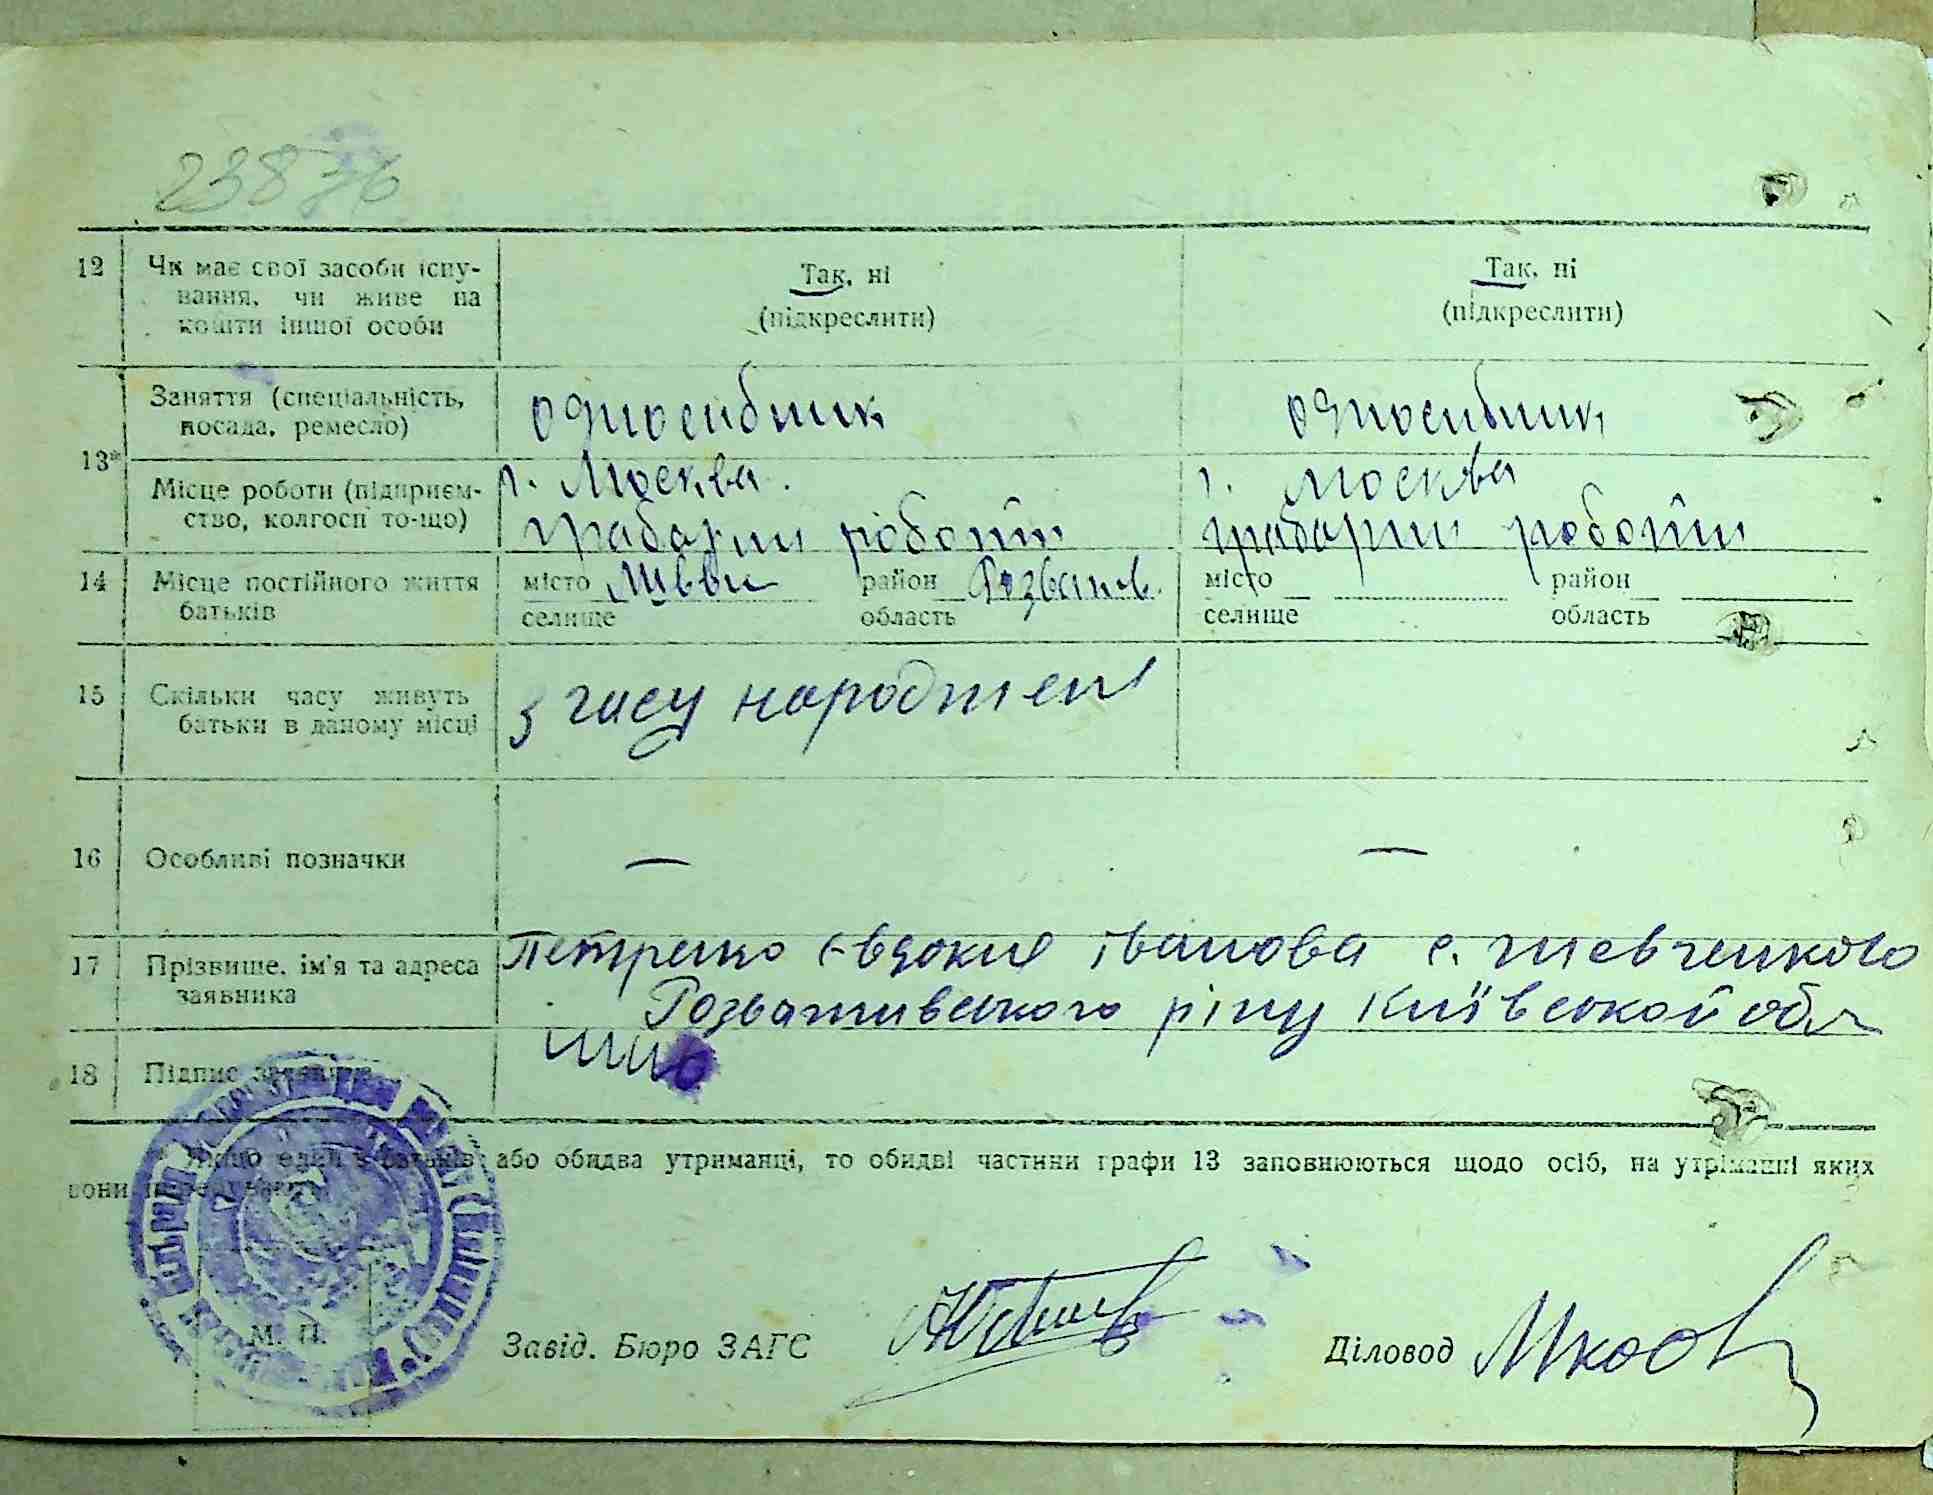 23876
12 Чи має свої засоби існу-
вання, чи живе на
кошти іншої особи
Так, ні
(підкреслити)
Так, ні
(підкреслити)
13*
Заняття (спеціальність,
посада, ремесло)
односибник
односибник
Місце роботи (підприєм-
ство, колгосп то-що)
г. Москва.
грабарни роботи
г. Москва
грабарни роботи
14 Місце постійного життя
батьків
місто район Розваж
селище область
місто район
селище область
15 Скільки часу живуть
батьки в даному місці
з часу народжені
16 Особливі позначки
—
—
17 Прізвище, ім'я та адреса
заявника
Петренко Євдокия Іванова с. Шевченково
Розваживського ріну Київської обл
18 Підпис
* Якщо один з батьків або обидва утриманці, то обидві частини графи 13 заповнюються щодо осіб, на утріманні яких
вони
М. П.
Завід. Бюро ЗАГС
Діловод